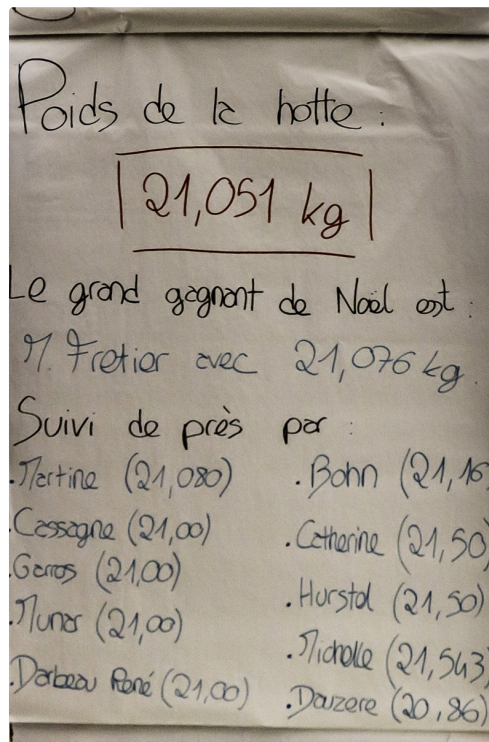 Poids de la hotte :
21,051 kg
Le grand gagnant de Noël est :
M. Fretier avec 21,076 kg.
Suivi de près par :
.Martine (21,080)
.Cassagne (21,00)
.Garros (21,00)
.Munar (21,00)
.Darbeau René (21,00)
.Bohn (21,16
.Catherine (21,50)
.Hurstel (21,50)
.Michelle (21,543)
.Dauzere (20,86)